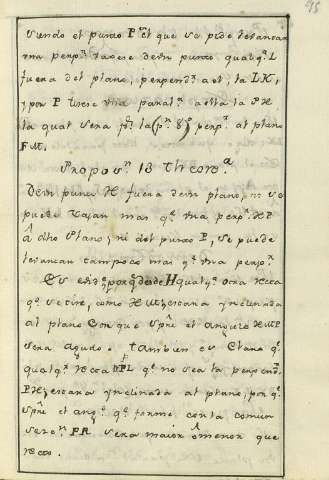 95
Siendo el punto P el que se pide levantar
una perp.r tirese de un punto qualq.r L
fuera del plano, perpend.r a el, la LK,
y por P tirese una paral.a a ella la PH
la qual sera perp.r al plano
FM.
Propos.n 13 Theore.a
De un punto H fuera de un plano, no se
puede bajar mas q.e una perp.r HP
â dho Plano; ni del punto P, se puede
levantar tampoco mas q.e una perp.r
Es evid.e porq.e desde H qualq.r otra recta
q.e se tire, como HM, estara ynclinada
al plano con que sp.re el angulo HMP
sera agudo. Tambien es Claro q.e
qualq.r recta PL q.e no sea la perpend.r
PH, estara ynclinada al plano, por q.e
sp.re el ang.o q.e forme con la comun
secc.n PR sera maior ô menor que
recto.